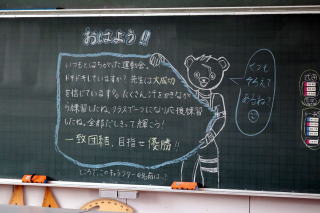 おはよう!!
いつもとはちがった運動会。
ドキドキしていますか？先生は大成功
を信じています。たくさん汗をかきながら
練習したね。クラスで一つになり応援練習
したね。全部だしきって輝こう！
一致団結、目指せ優勝!!
ところで、このキャラクターの名前は…？
くつも
そろえて
あるね？